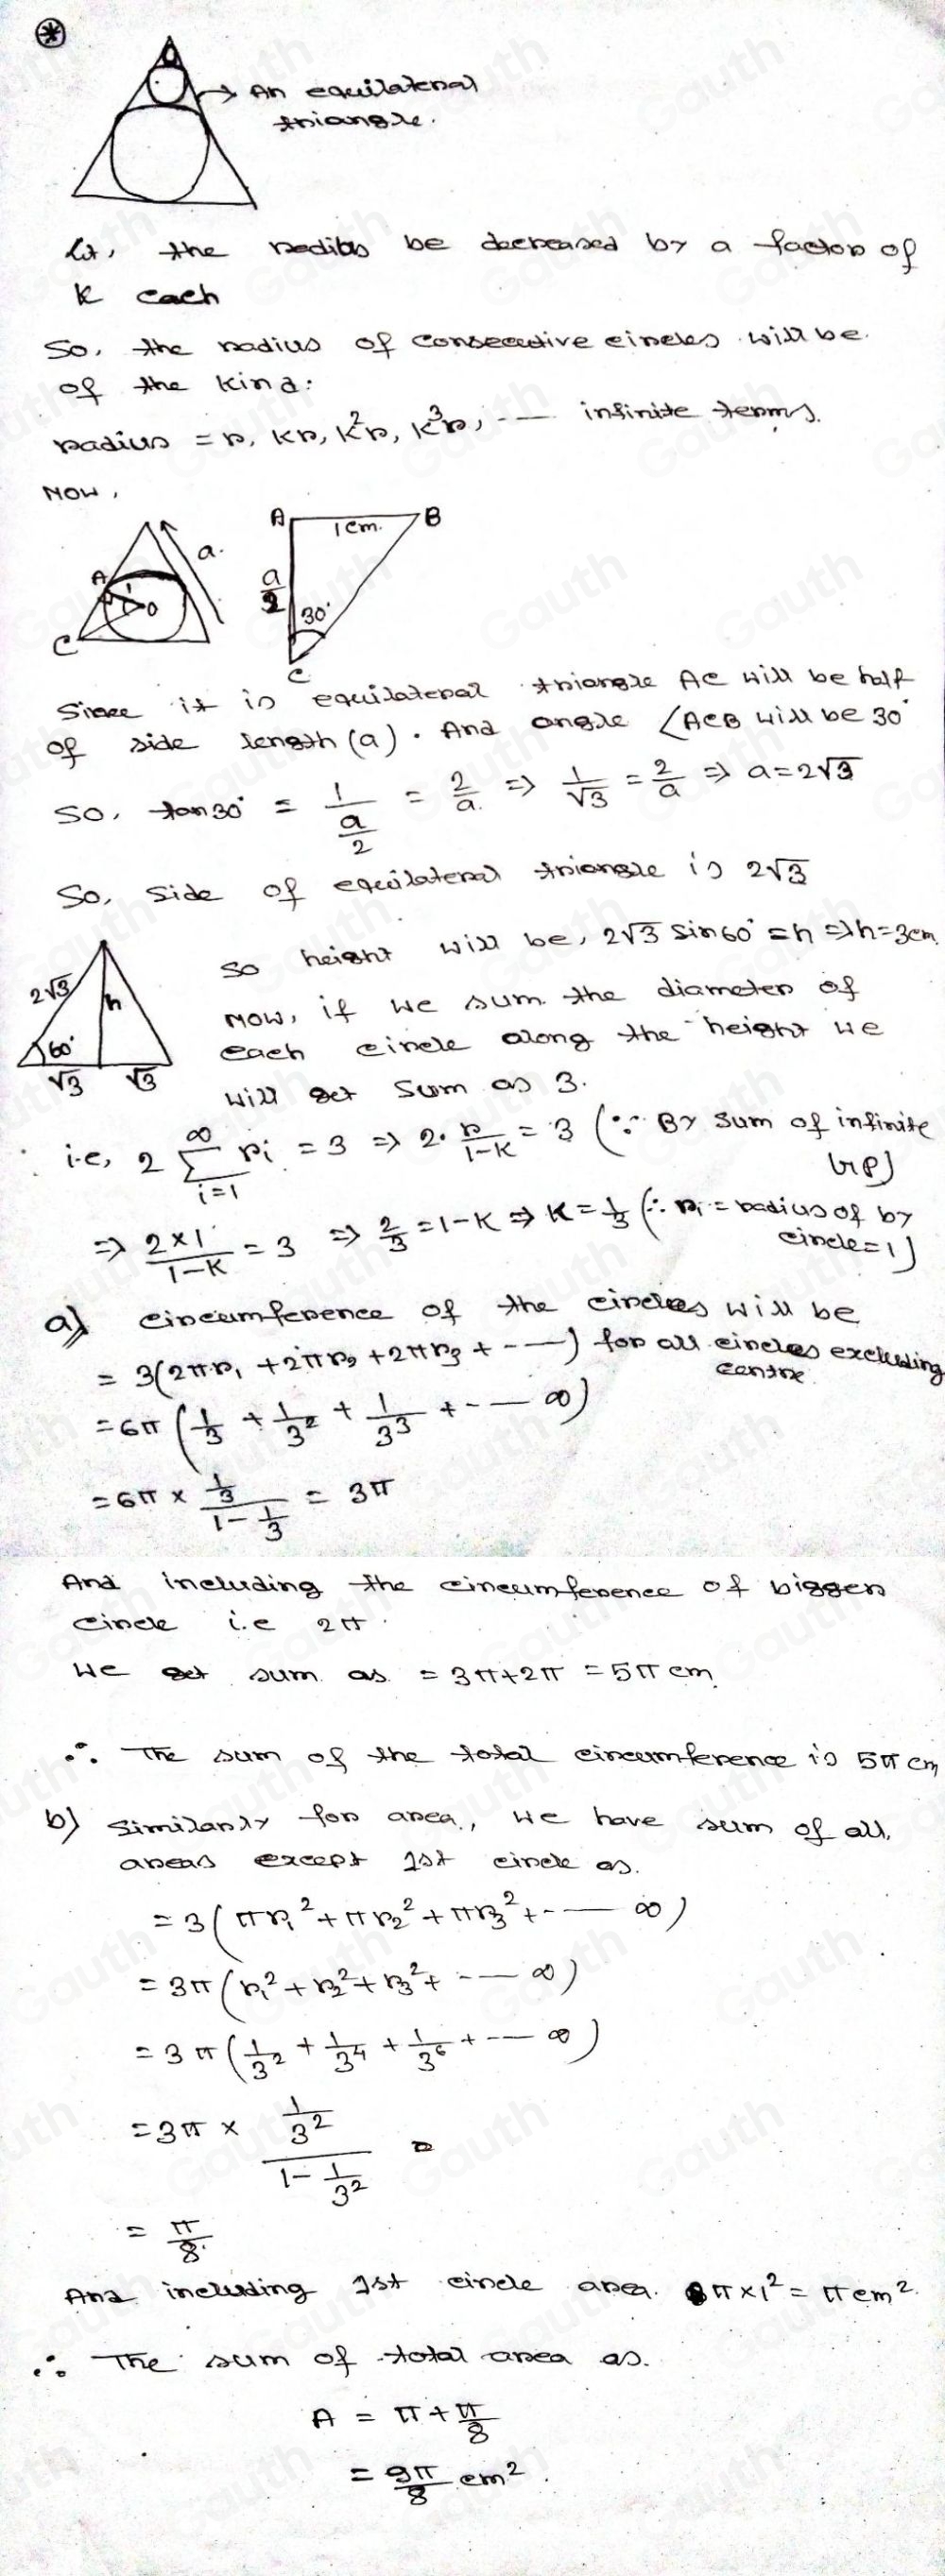 An equilateral
triangle.
Let, the radius be decreased by a factor of
K each
So, the radius of consecutive circles will be.
of the kind:
radius = r, Kr, K²r, K³r, --- infinite terms.
Now,
a.
A
O
C
A 1cm. B
a/2
30°
C
Since it is equilateral triangle AC will be half
of side length (a). And angle ∠ACB will be 30°
So, tan30° = 1/(a/2) = 2/a. ⇒ 1/√3 = 2/a ⇒ a=2√3
So, Side of equilateral triangle is 2√3
So height will be, 2√3 sin60° = h ⇒ h=3cm.
2√3
h
60°
√3 √3
Now, if we sum the diameter of
each circle along the height we
will get sum as 3.
i.e, 2 ∞∑i=1 ri = 3 ⇒ 2. r/(1-K) = 3 (∵ By sum of infinite
GP)
⇒ (2×1)/(1-K) = 3 ⇒ 2/3 = 1-K ⇒ K = 1/3 (∴ r1 = radius of by
circle=1)
a) circumference of the circles will be
= 3(2πr₁ + 2πr₂ + 2πr₃ + ---) for all circles excluding
centre.
= 6π (1/3 + 1/3² + 1/3³ + --- ∞)
= 6π × (1/3)/(1-1/3) = 3π
And including the circumference of bigger
circle i.e 2π.
we get sum as = 3π+2π = 5π cm.
∴ The sum of the total circumference is 5π cm
b) Similarly for area, we have sum of all,
areas except 1st circle as.
= 3 (πr₁² + πr₂² + πr₃² + --- ∞)
= 3π (r₁² + r₂² + r₃² + --- ∞)
= 3π (1/3² + 1/3⁴ + 1/3⁶ + --- ∞)
= 3π × (1/3²)/(1-1/3²) =
= π/8.
And including 1st circle area. π×1² = π cm².
∴ The sum of total area as.
A = π + π/8
= 9π/8 cm².